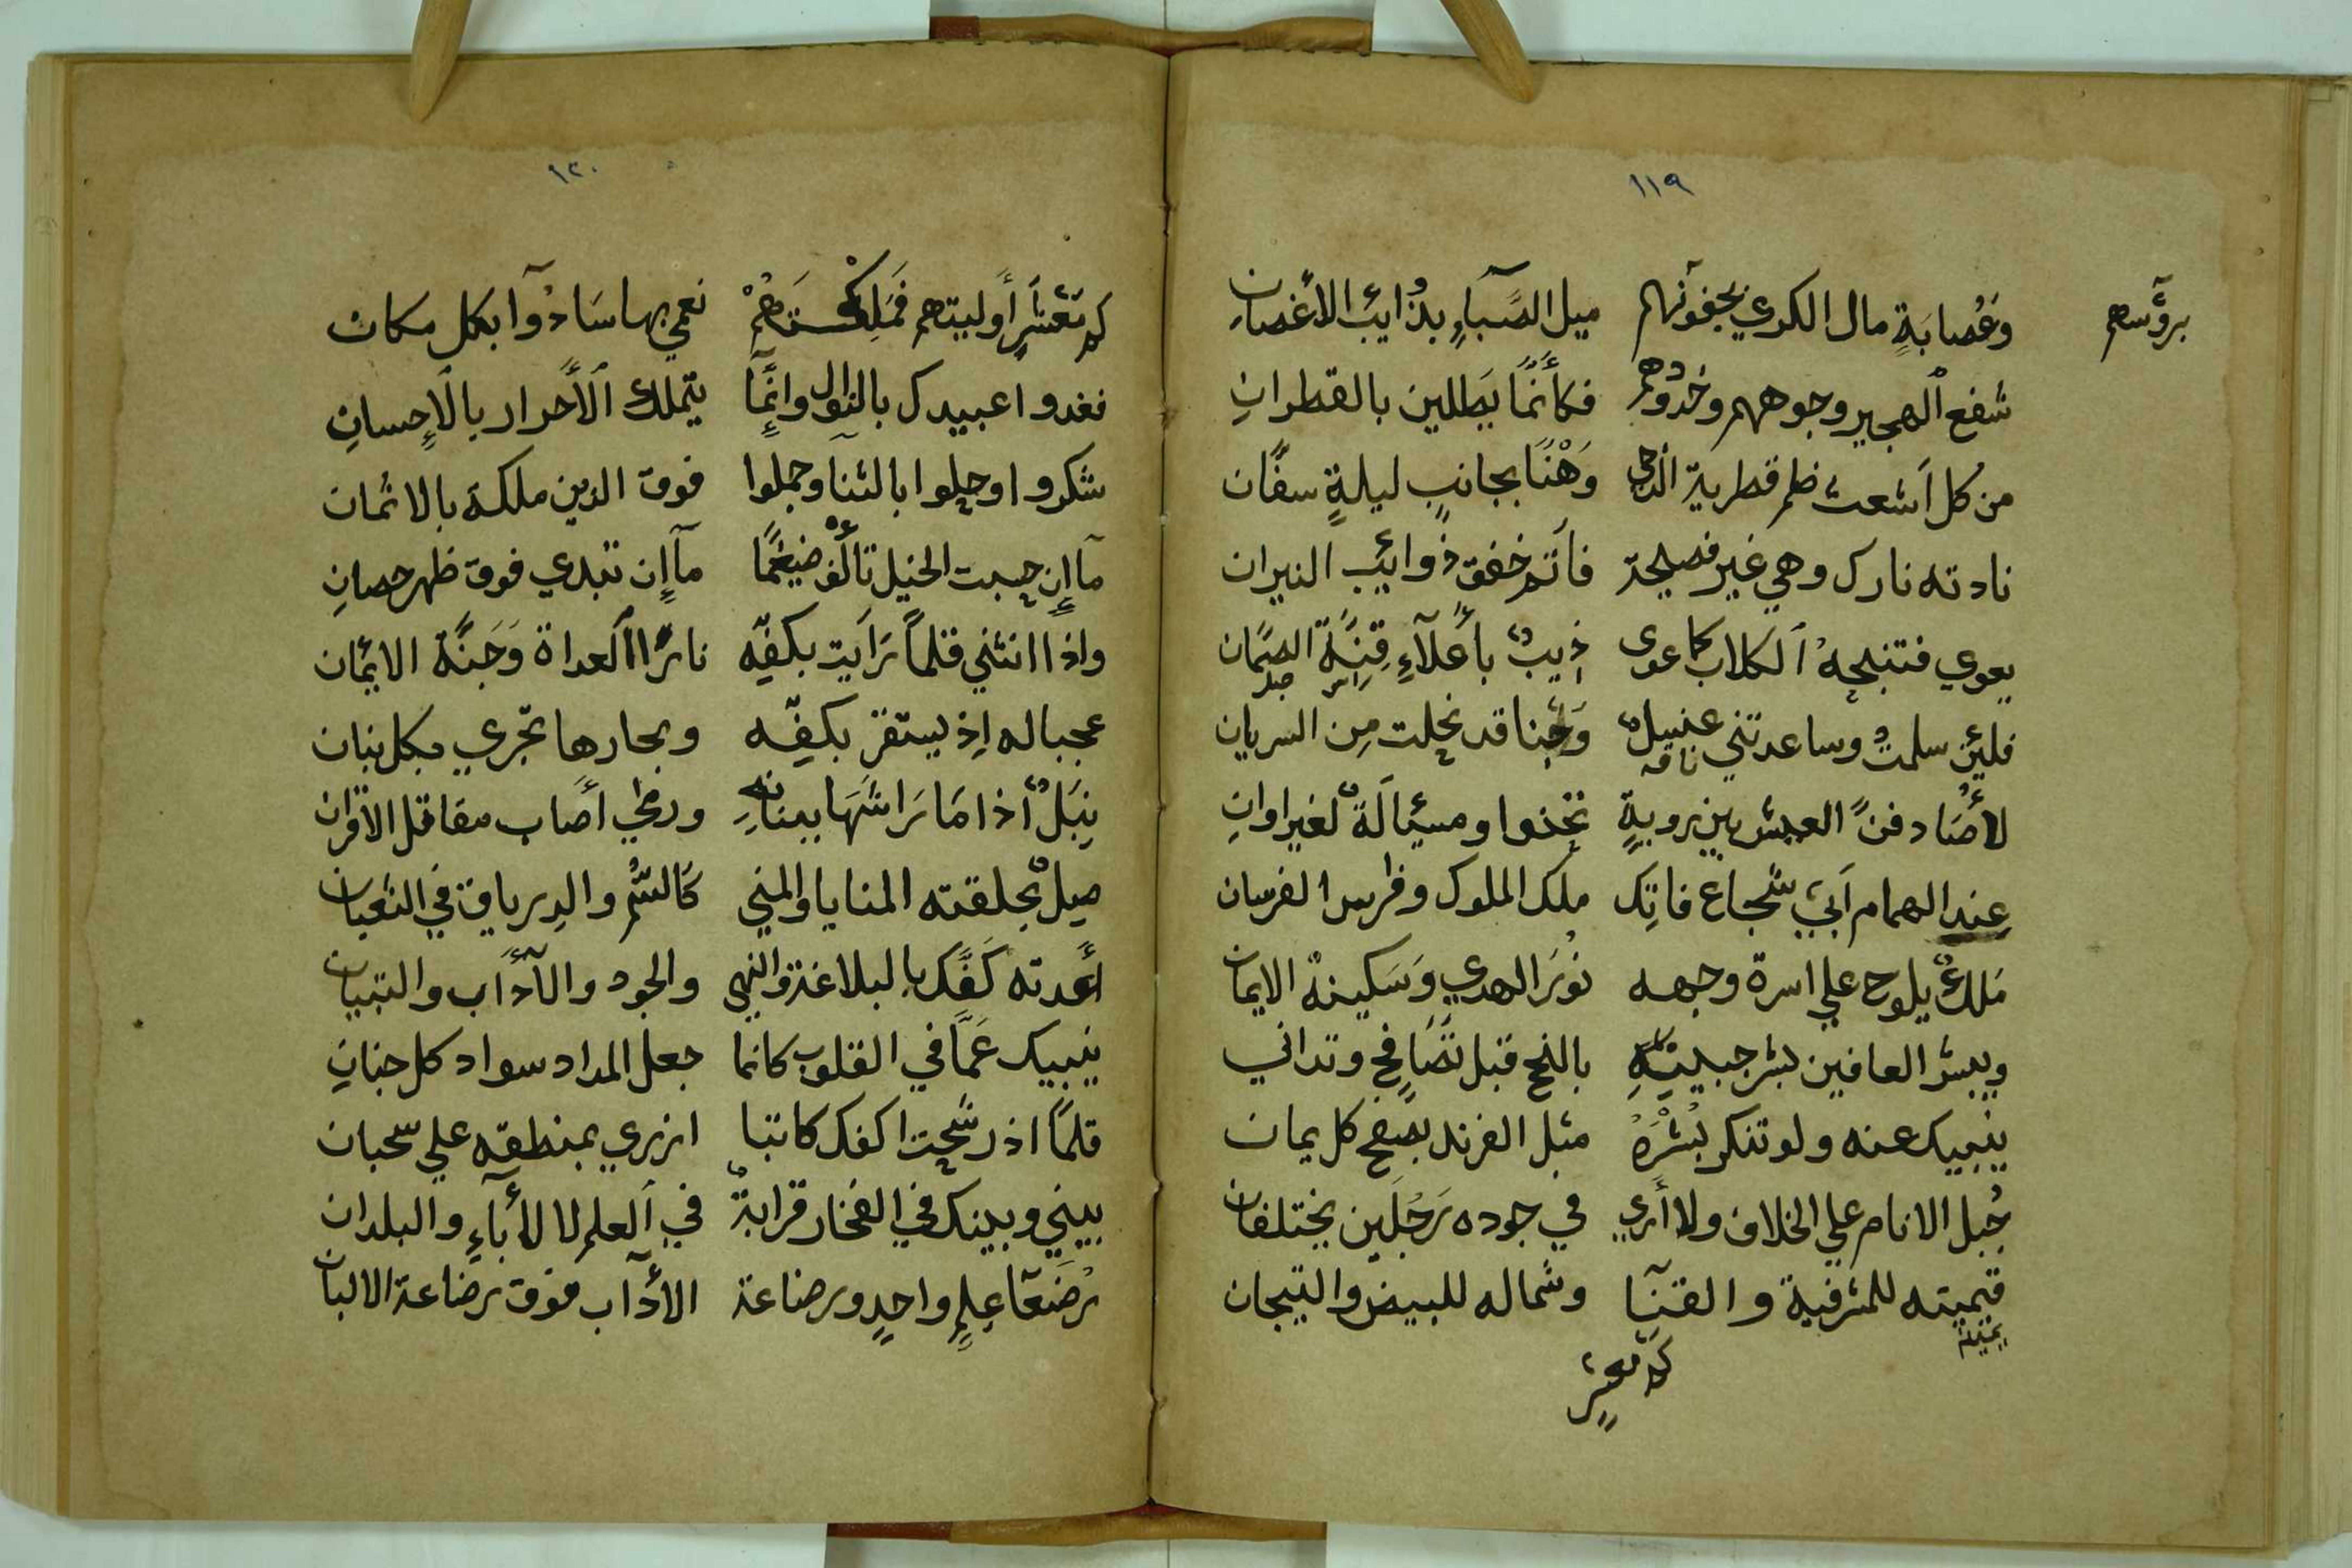 ١١٩
وَعُصابَةٍ مال الكري بجفونهم ميل الصَّبَاءِ بذُايب الأغصانِ
برؤسهم
شفع الهجير وجوههم وخدودهم فكأنَّما يَطلين بالقطرانِ
من كل أشعث ظلم قطرية الدجي وَهْنًا بجانب ليلةٍ سفَّان
نادته نارك وهي غير فصيحة فأتَم خفق ذوايب النيران
يعوي فتنبحهُ الكلاب كما عوى ذيبٌ بأعلآءِ قِنَّة الصمَّان
راس جبل
فلين سلمتُ وساعدتني عنسلٌ وَجنا قد نحلت مِن السريان
ناقه
لأصَادفنَّ العيش بين رويةٍ نحوا ومسئالَةٌ لغير اوانِ
عِند الهمام أبي شجاع فاتِك ملك الملوك وفارس الفرسان
مَلكٌ يلوح علي اسرة وجهه نُورَ الهدي وَسَكينة الايمان
ويبشر العافين بشر جبينِهِ بالنجح قبل تصَافح وتداني
ينبيك عنه ولو تنكر بُشْرَهُ مثل الفرند بصفح كل يمان
جُبل الانام علي الخلاف ولا أري في جوده رَجُلَين يختلفان
قيمينه للمشرفية والقنَا وشماله للبيض والتيجان
يمينه
كم معشرٍ
١٢٠
كم مَعْشَرٍ أوليتهم فَمَلِكْتَهُمْ نعمي بها سَادُوا بكل مكان
فغدوا عبيدك بالنوال وانَّما يتملك الأحرار بالإحسانِ
شكروا وحلوا بالثنا وجملوا فوق الذين ملكة بالاثمان
مآ إن حسبت الخيل تألف ضيغمًا مآ إن تبدي فوق ظهر حصانِ
واذا انثني قلمًا رَايت بكفِّه نارًا العداة وَجَنَّة الايمان
عجبا له إِذ يستقر بكفِّه وبحارها تجري بكل بنان
نِبَلٌ أذا مَا رَاشَهَا ببنانِهِ ورمي أصاب مقاتل الاقران
صِلٌ بحلقته المنايا والمني كالسُّم والدرياق في الثعبان
أعدته كَفَّك بالبلاغة والنهي والجود والآداب والتبيان
ينبيك عَمَّا في القلوب كانما جعل المداد سواد كل جنانِ
قلمًا اذ رشحت اكفك كاتبا ازري بمنطقه علي سحبان
بيني وبينك في الفخار قرابةٌ في العلم لا للأباءِ والبلدان
رُضَعَا عِلمٍ واحدٍ ورضاعة الأدآب فوق رضاعة الالبان